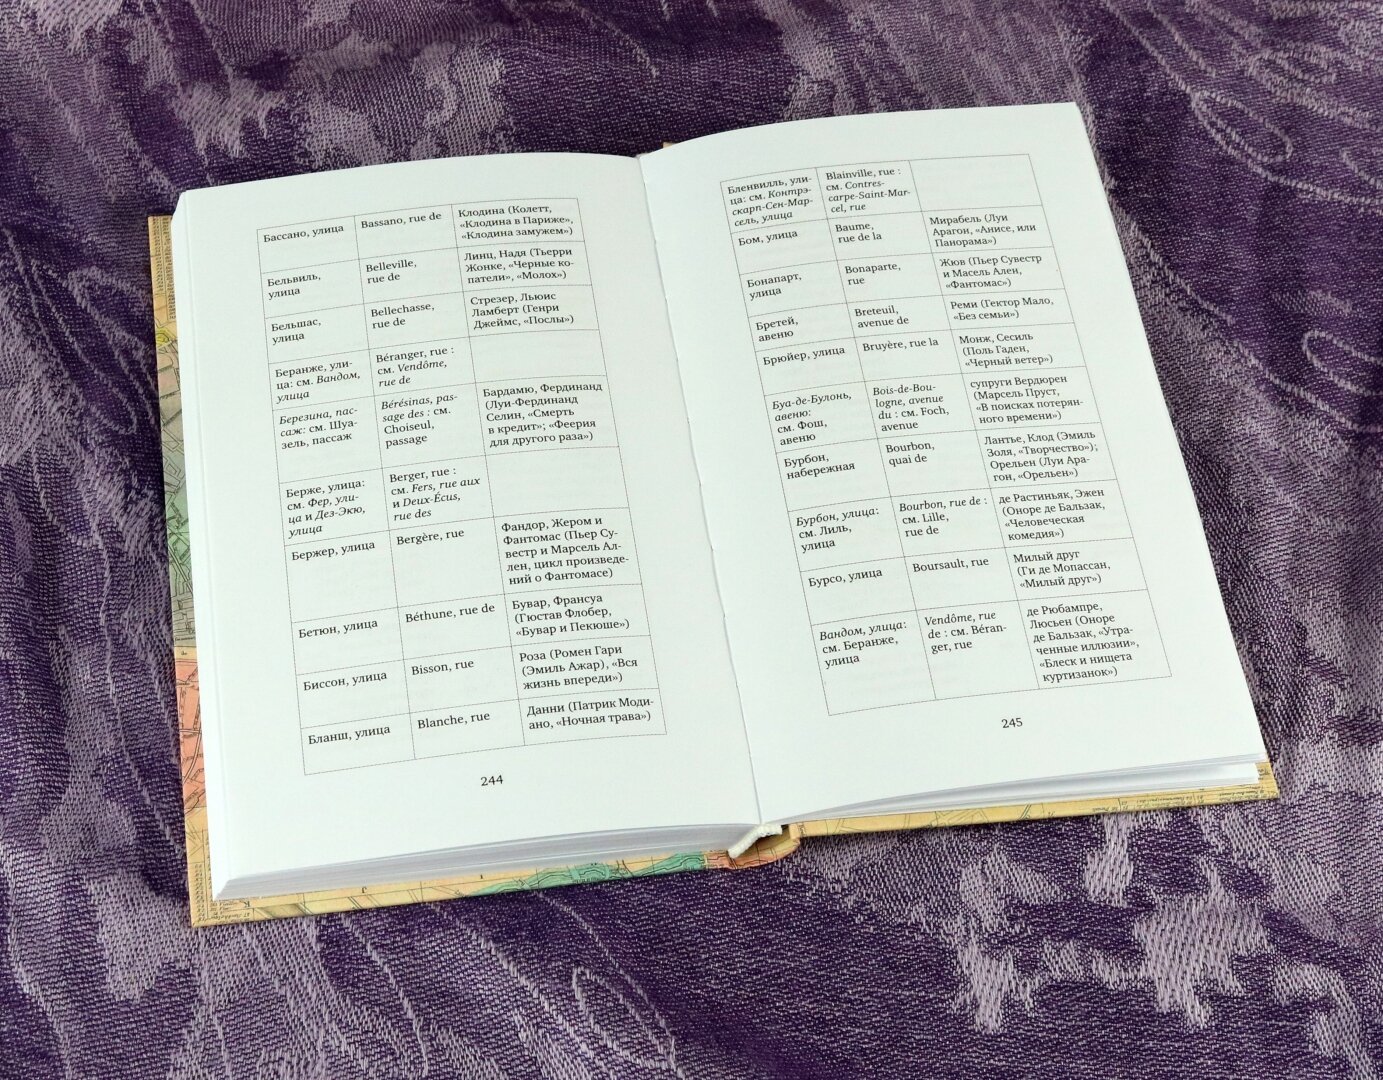 Бассано, улица
Bassano, rue de
Клодина (Колетт,
«Клодина в Париже»,
«Клодина замужем»)
Бельвиль,
улица
Belleville,
rue de
Линц, Надя (Тьерри
Жонке, «Черные ко-
патели», «Молох»)
Бельшас,
улица
Bellechasse,
rue de
Стрезер, Льюис
Ламберт (Генри
Джеймс, «Послы»)
Беранже, ули-
ца: см. Вандом,
улица
Béranger, rue :
см. Vendôme,
rue de
Березина, пас-
саж: см. Шуа-
зель, пассаж
Bérésinas, pas-
sage des : см.
Choiseul,
passage
Бардамю, Фердинанд
(Луи-Фердинанд
Селин, «Смерть
в кредит»; «Феерия
для другого раза»)
Берже, улица:
см. Фер, ули-
ца и Дез-Экю,
улица
Berger, rue :
см. Fers, rue aux
и Deux-Écus,
rue des
Бержер, улица
Bergère, rue
Фандор, Жером и
Фантомас (Пьер Су-
вестр и Марсель Ал-
лен, цикл произведе-
ний о Фантомасе)
Бетюн, улица
Béthune, rue de
Бувар, Франсуа
(Гюстав Флобер,
«Бувар и Пекюше»)
Биссон, улица
Bisson, rue
Роза (Ромен Гари
(Эмиль Ажар), «Вся
жизнь впереди»)
Бланш, улица
Blanche, rue
Данни (Патрик Моди-
ано, «Ночная трава»)
244
Бленвилль, ули-
ца: см. Контрэ-
скарп-Сен-Мар-
сель, улица
Blainville, rue :
см. Contres-
carpe-Saint-Mar-
cel, rue
Бом, улица
Baume,
rue de la
Мирабель (Луи
Арагон, «Анисе, или
Панорама»)
Бонапарт,
улица
Bonaparte,
rue
Жюв (Пьер Сувестр
и Масель Ален,
«Фантомас»)
Бретей,
авеню
Breteuil,
avenue de
Реми (Гектор Мало,
«Без семьи»)
Брюйер, улица
Bruyère, rue la
Монж, Сесиль
(Поль Гаден,
«Черный ветер»)
Буа-де-Булонь,
авеню:
см. Фош,
авеню
Bois-de-Bou-
logne, avenue
du : см. Foch,
avenue
супруги Вердюрен
(Марсель Пруст,
«В поисках потерян-
ного времени»)
Бурбон,
набережная
Bourbon,
quai de
Лантье, Клод (Эмиль
Золя, «Творчество»);
Орельен (Луи Ара-
гон, «Орельен»)
Бурбон, улица:
см. Лиль,
улица
Bourbon, rue de :
см. Lille,
rue de
де Растиньяк, Эжен
(Оноре де Бальзак,
«Человеческая
комедия»)
Бурсо, улица
Boursault, rue
Милый друг
(Ги де Мопассан,
«Милый друг»)
Вандом, улица:
см. Беранже,
улица
Vendôme, rue
de : см. Béran-
ger, rue
де Рюбампре,
Люсьен (Оноре
де Бальзак, «Утра-
ченные иллюзии»,
«Блеск и нищета
куртизанок»)
245